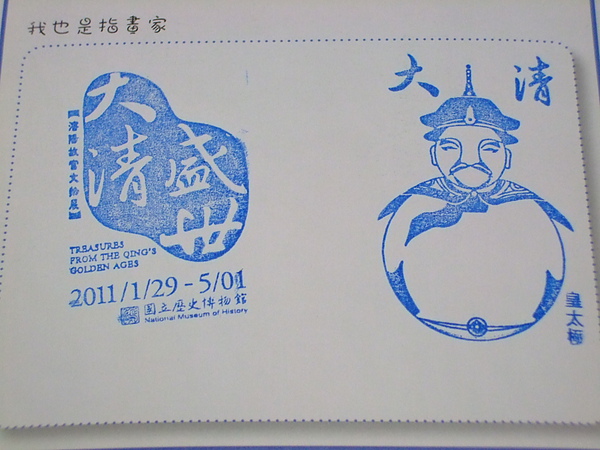 我也是指畫家
大清
盛世
【瀋陽故宮文物展】
TREASURES
FROM THE QING'S
GOLDEN AGES
2011/1/29 - 5/01
國立歷史博物館
National Museum of History
大清
皇太極